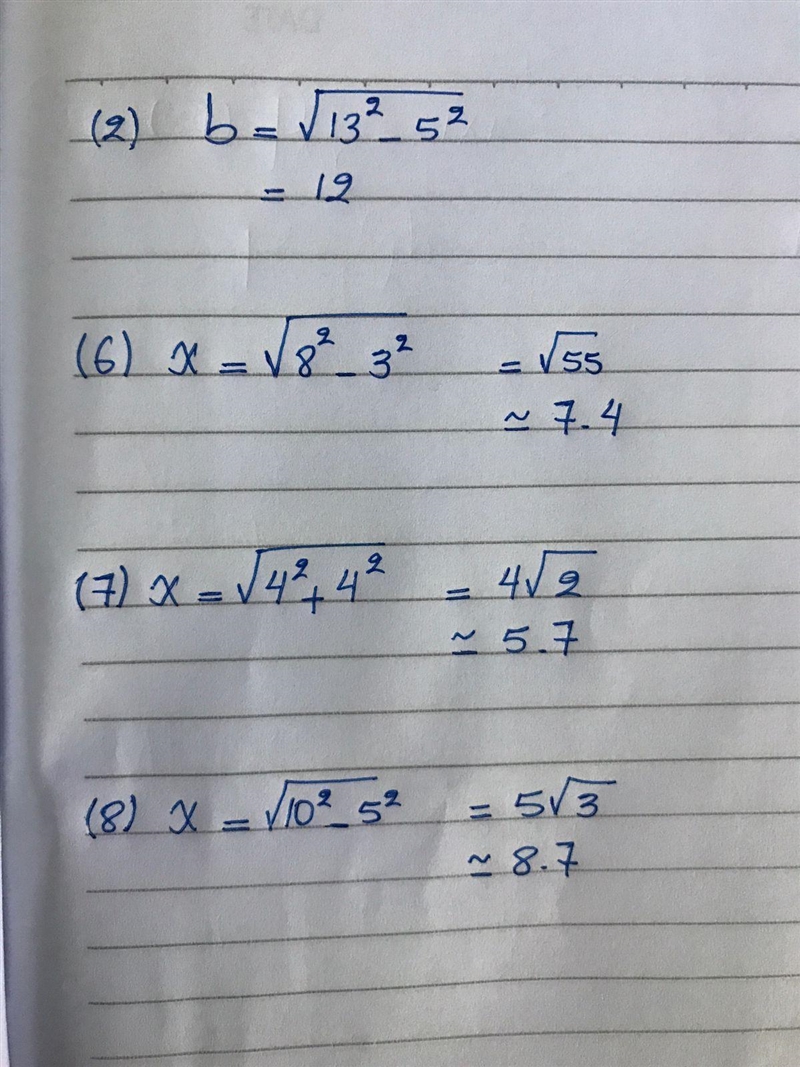 DATE
(2) b = √13² - 5²
= 12
(6) x = √8² - 3² = √55
≃ 7.4
(7) x = √4² + 4² = 4√2
≃ 5.7
(8) x = √10² - 5² = 5√3
≃ 8.7